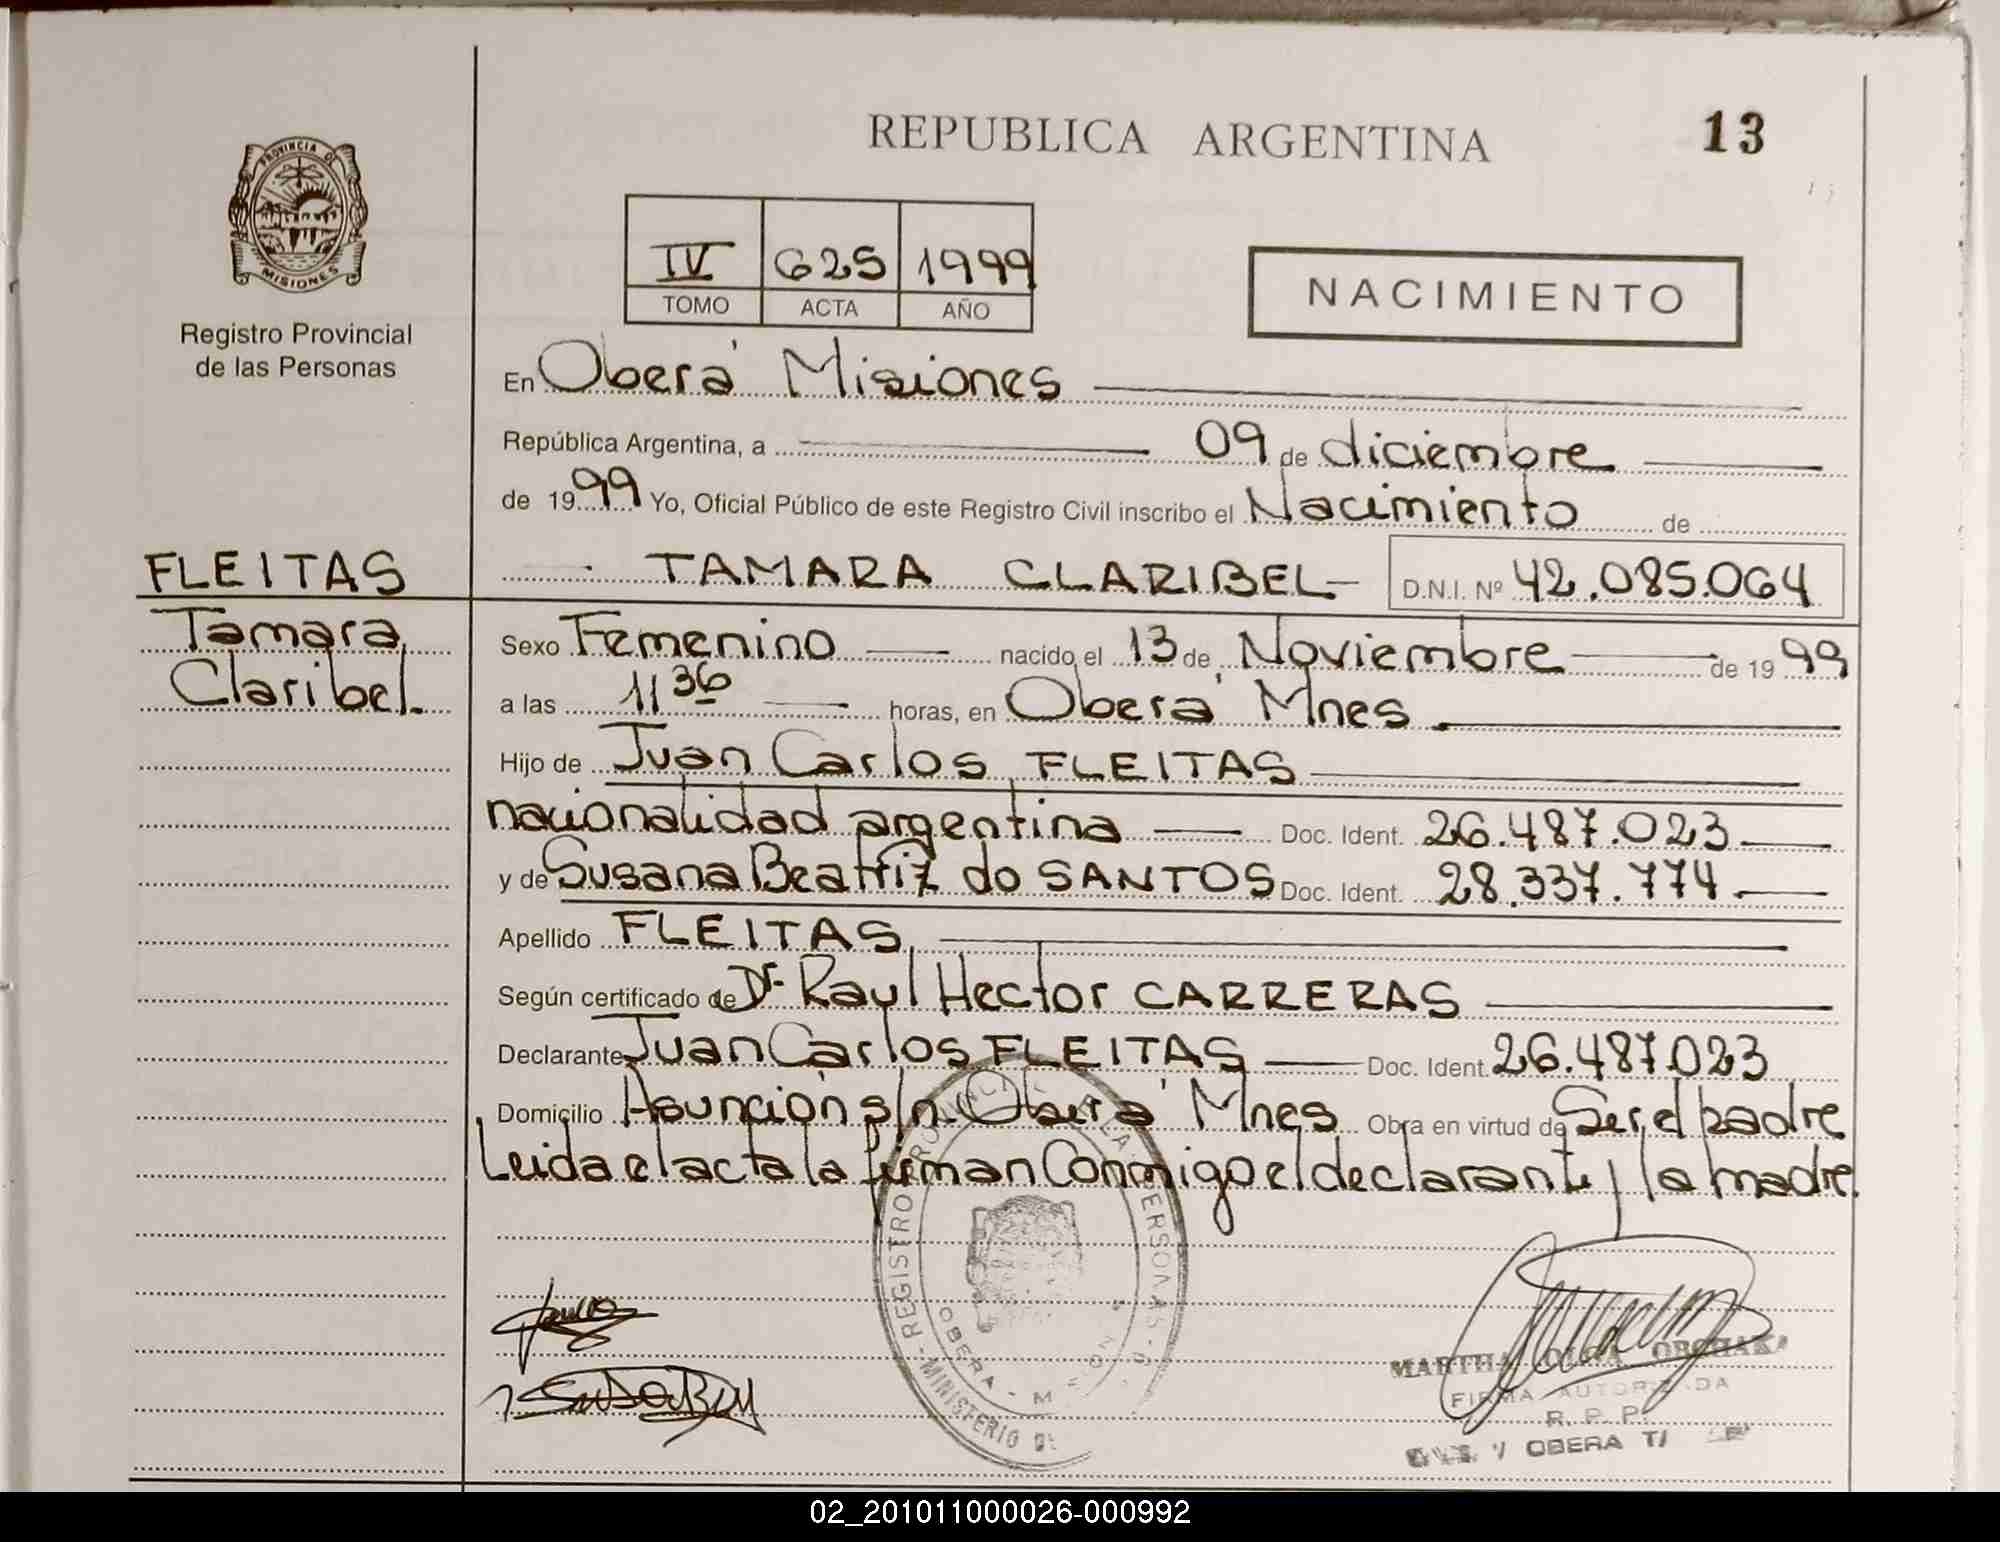 REPUBLICA ARGENTINA
13
PROVINCIA DE
MISIONES
Registro Provincial
de las Personas
IV 625 1999
TOMO ACTA AÑO
NACIMIENTO
En Oberá Misiones
República Argentina, a 09 de diciembre
de 1999 Yo, Oficial Público de este Registro Civil inscribo el Nacimiento de
TAMARA CLARIBEL D.N.I. Nº 42.085.064
FLEITAS
Tamara
Claribel.
Sexo Femenino nacido el 13 de Noviembre de 1999
a las 11 36 horas, en Oberá Mnes.
Hijo de Juan Carlos FLEITAS
nacionalidad argentina Doc. Ident. 26.487.023
y de Susana Beatriz do SANTOS Doc. Ident. 28.337.774
Apellido FLEITAS
Según certificado de Dr. Raul Hector CARRERAS
Declarante Juan Carlos FLEITAS Doc. Ident. 26.487.023
Domicilio Asunción s/n. Oberá Mnes Obra en virtud de Ser el padre
Leida el acta la firman Conmigo el declarante y la madre.
REGISTRO PROVINCIAL DE LAS PERSONAS
OBERA
MINISTERIO DE
MARTHA OLGA
FIRMA AUTORIZADA
R. P. P.
OBERA
02_201011000026-000992